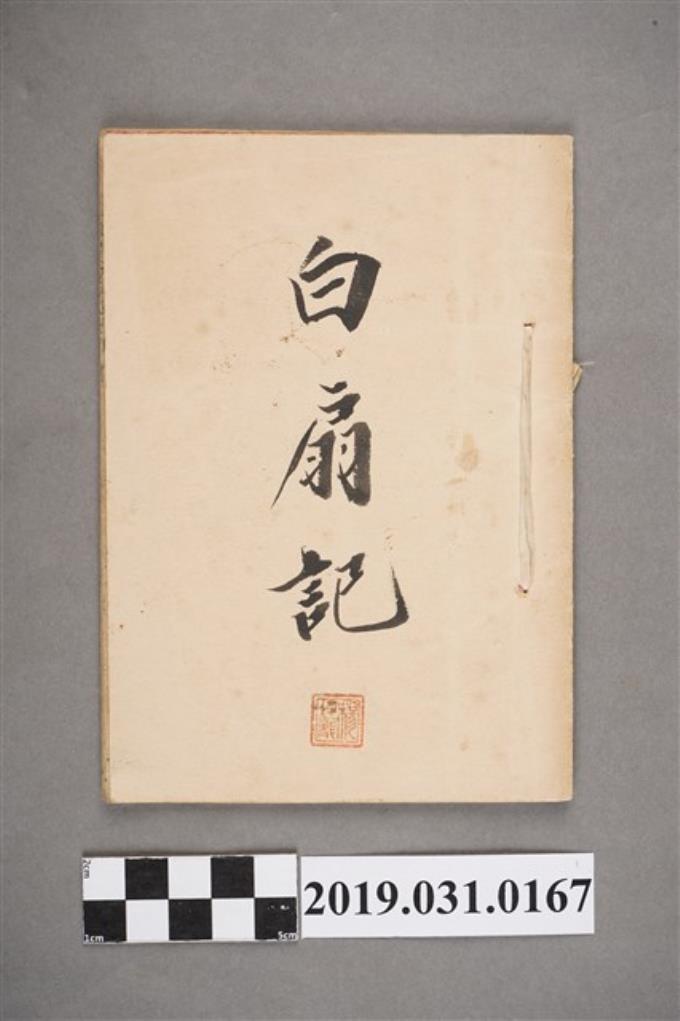 白扇記
2cm
1cm
5cm
2019.031.0167